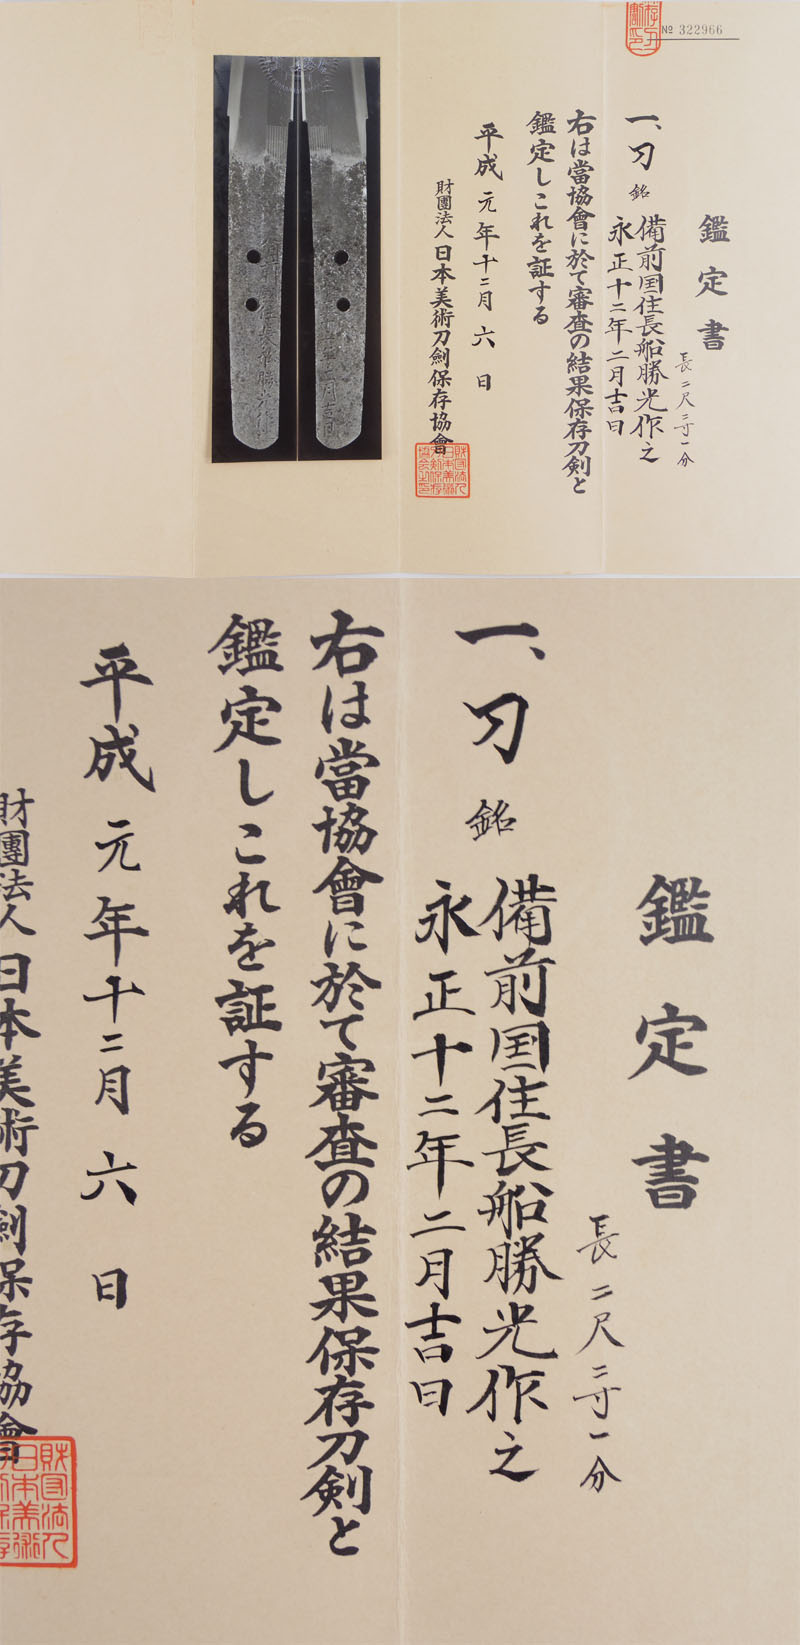 № 322966
鑑定書
長二尺二寸一分
一、刀 銘 備前国住長船勝光作之
永正十二年二月吉日
右は當協會に於て審査の結果保存刀剣と
鑑定しこれを証する
平成元年十二月六日
財團法人日本美術刀劍保存協會
鑑定書
長二尺二寸一分
一、刀 銘 備前国住長船勝光作之
永正十二年二月吉日
右は當協會に於て審査の結果保存刀剣と
鑑定しこれを証する
平成元年十二月六日
財團法人日本美術刀劍保存協會